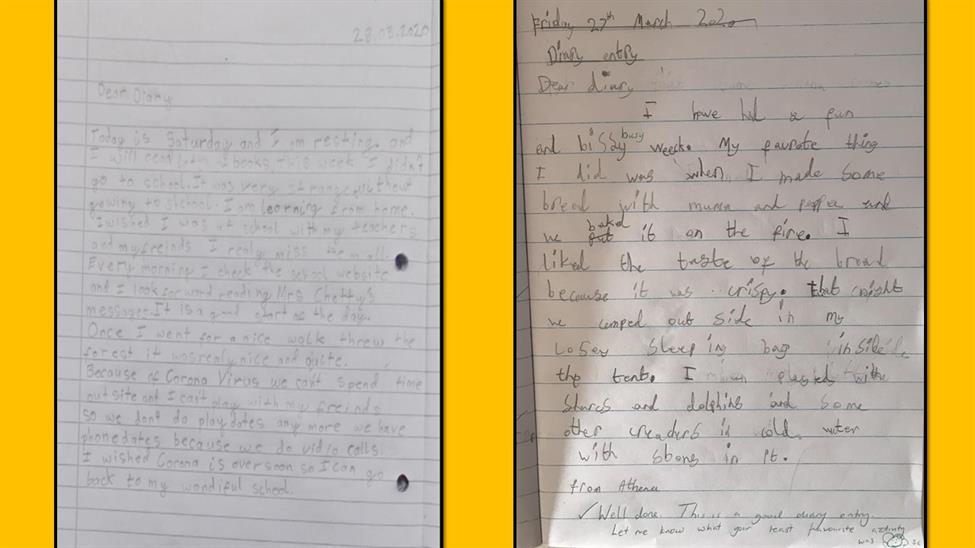 28.03.2020
Dear Diary
Today is Saturday and I am resting, and
I will books this week I didn't
go to school. It was very strange without
gowing to school. I am learning from home.
I wished I was at school with my teachers
and my freinds I really miss them all.
Every morning I check the school website
and I look forword reading Mrs Chetty's
messages. It is a good start of the day.
Once I went for a nice walk threw the
forest it was realy nice and quite.
Because of Corona Virus we can't spend time
outsite and I can't play with my freinds
so we don't do playdates any more we have
phonedates because we do vidio calls.
I wished Corona is over soon so I can go
back to my wondiful school.
Friday 27th March 2020
Diary entry
Dear diary
I have had a fun
and busy week. My favrote thing
I did was when I made some
bread with mumma and pappa and
we baked it on the fire. I
liked the taste of the bread
because it was crispy. that night
we camped out side in my
sleeping bag inside
the tent. I played with
Shares and dolphins and some
other creaders in cold water
with stons in it.
from Athena
✓ Well done. This is a good diary entry.
Let me know what your least favourite activity
was